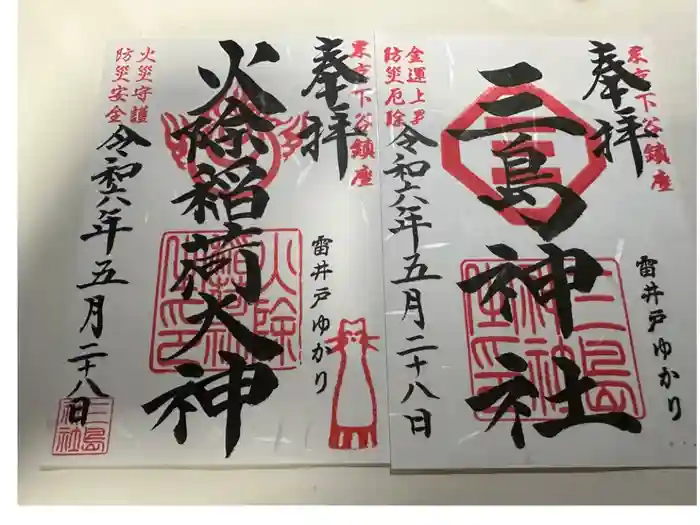 東京下谷鎮座
奉拝
三島神社
雷井戸ゆかり
令和六年五月二十八日
金運上昇
防災厄除
三島
神社
住印
東京下谷鎮座
奉拝
火除稲荷大神
雷井戸ゆかり
令和六年五月二十八日
火災守護
防災安全
火除
稲荷社
三島
神社